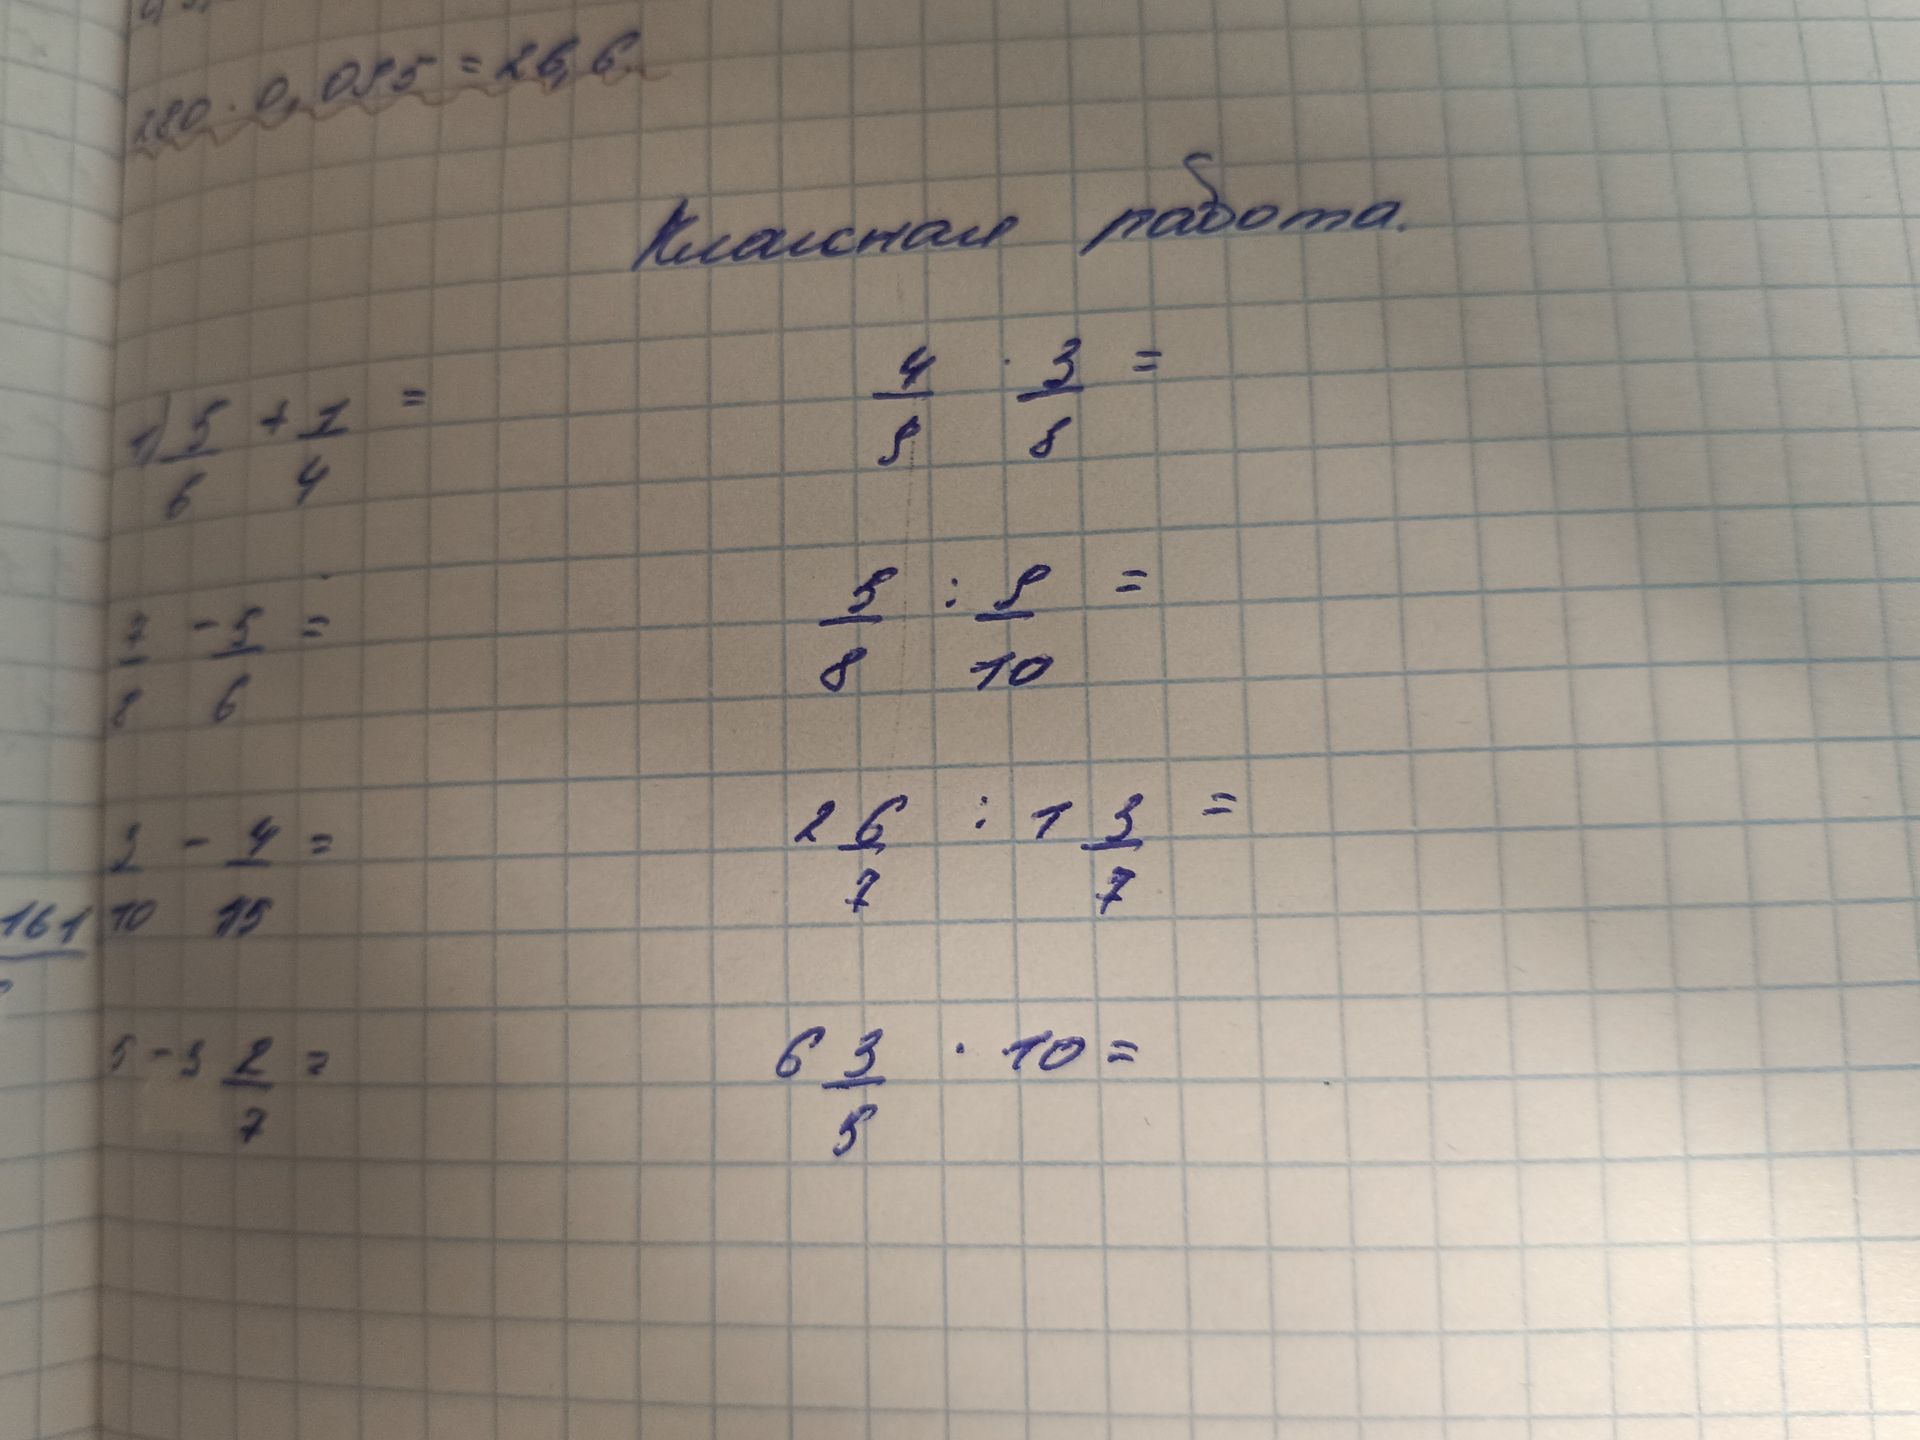 280 · 0,095 = 26,6
Классная работа.
1) 5/6 + 1/4 =
4/9 · 3/8 =
7/8 - 5/6 =
5/8 : 9/10 =
3/10 - 4/15 =
2 6/7 : 1 3/7 =
161
5 - 3 2/7 =
6 3/5 · 10 =